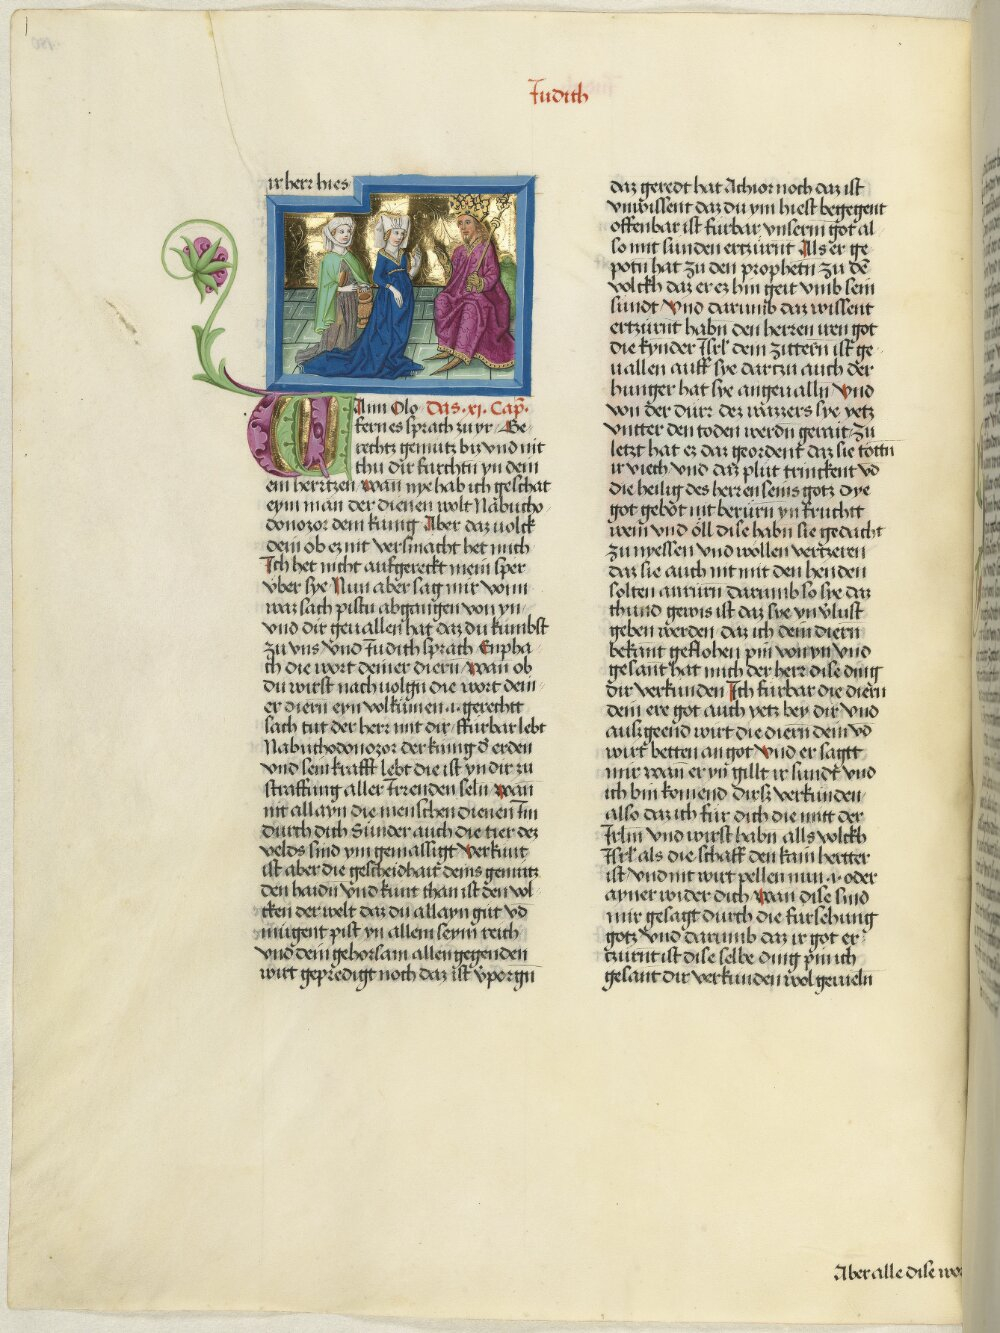 Judith
ir herr hies
Ann Olo das .xi. Cap.
fernes sprach zu yr Be
rechts gemutz biz vnd nit
thu dir furchtn yn dem
em herrtzen wan nye hab ich geschat
eym man der dienen wolt Nabucho
donozor dem kunig Aber daz uolck
dem ob ez nit versmacht het mich
Ich het nicht aufgereckt mein sper
vber sye Nun aber sag mir vom
waz sach pistu abgangen von yn
vnd dir geuallen hat daz du kumbst
zu vns Vnd Judith sprach Enpha
ch die wort deiner diern wan ob
du wirst nach uolgn die wort dein
er diern eyn volkumen .i. gerechtt
sach tut der herr mit dir ffurbar lebt
Nabuchodonozor der kunig d erden
vnd sein krafft lebt die ist yn dir zu
straffung aller Irrenden seln wan
nit allayn die menschen dienen Im
durch dich Sunder auch die tier dez
velds sind ym gemassigt verkunt
ist aber die gescheidhait deins gemutz
den haidn vnd kunt than ist den vol
cken der welt daz du allayn gut vd
mugent pist yn allem seym reich
vnd dein gehorsam allen gegenden
wirt gepredigt noch daz ist vporgn
daz geredt hat Achior noch daz ist
vnwissent daz du ym hiest begegent
offenbar ist furbar vnserm got al
so mit sunden ertzurnt Als er ge
potn hat zu den prophetn zu de
volckh daz er ez hin geit vmb sein
sundt Vnd darumb daz wissent
ertzurnt habn den herren iren got
die kynder Isrl dein zittern ist ge
uallen auff sye dartzu auch der
hunger hat sye angeualln Vnd
von der durr dez wazzers sye yetz
vntter den toden werdn gerait Zu
letzt hat ez daz geordent daz sie tottn
ir viech vnd daz plut trinckent vd
die heilig des herren seins gotz dye
got gebot nit berurn yn fruchtt
wein vnd oll dise habn sie gedacht
zu nyessen vnd wollen vertzeren
daz sie auch nit mit den henden
solten anrurn darumb so sye daz
thund gewis ist daz sye yn vlust
geben werden daz ich dein diern
bekant geflohen pin von yn vnd
gesant hat mich der herr dise ding
dir verkunden Ich furbar die diern
dein ere got auch yetz bey dir vnd
ausz geend wirt die diern dein vd
wirt betten an got Vnd er sagtt
mir wan er yn gillt ir sundt vnd
ich bin komend dirsz verkunden
also daz ich fur dich die mitt der
Irlm vnd wirst habn alls volckh
Isrl als die schaff den kain hertter
ist vnd nit wirt pellen nun .i. oder
ayner wider dich wan dise sind
mir gesagt durch die fursehung
gotz vnd darumb daz ir got er
tzurnt ist dise selbe ding pin ich
gesant dir verkunden wol geuieln
Aber alle dise wo